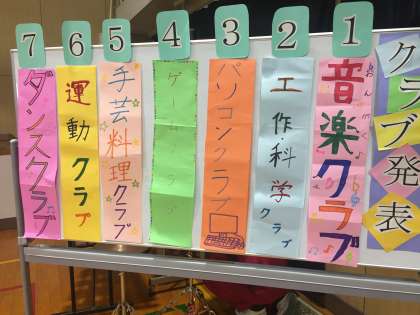 クラブ発表
1
音楽クラブ
おんがく
2
工作・科学クラブ
3
パソコンクラブ
4
ゲームクラブ
5
手芸料理クラブ
6
運動クラブ
7
ダンスクラブ